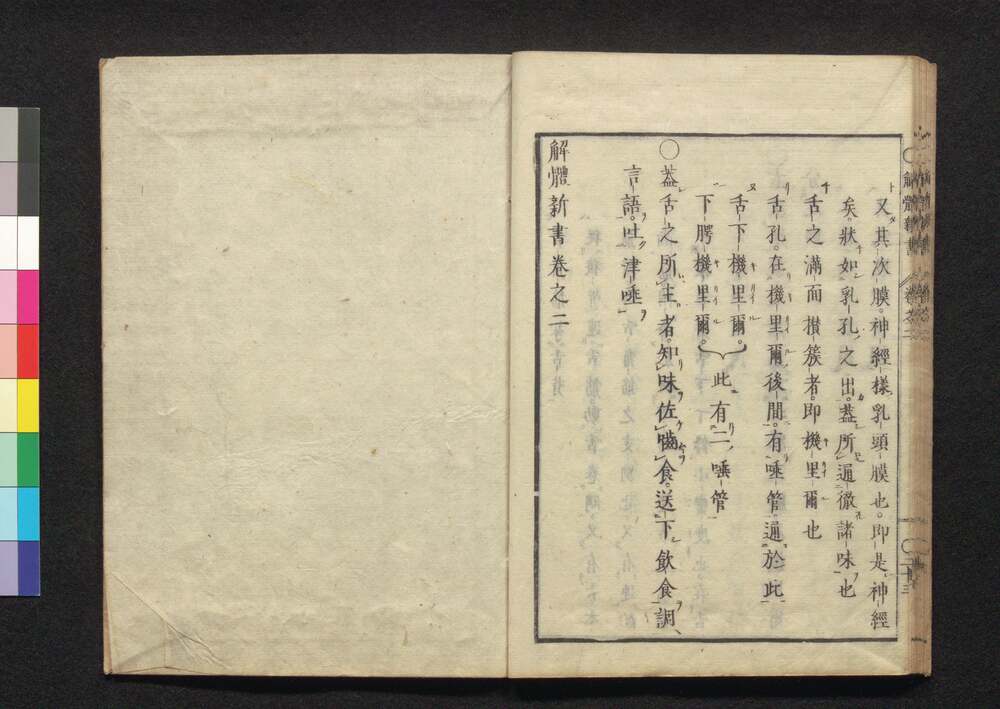 又其次膜。神經樣乳頭膜也。即是神經
矣。狀如乳孔之出。葢所遍徹諸味也
舌之滿面攅簇者。即機里爾也
舌孔。在機里爾後間。有唾管通於此
舌下機里爾。
下腭機里爾。
此有二唾管
〇葢舌之所主者。知味佐嚙食。送下飲食調
言語。吐津唾
解體新書卷之二